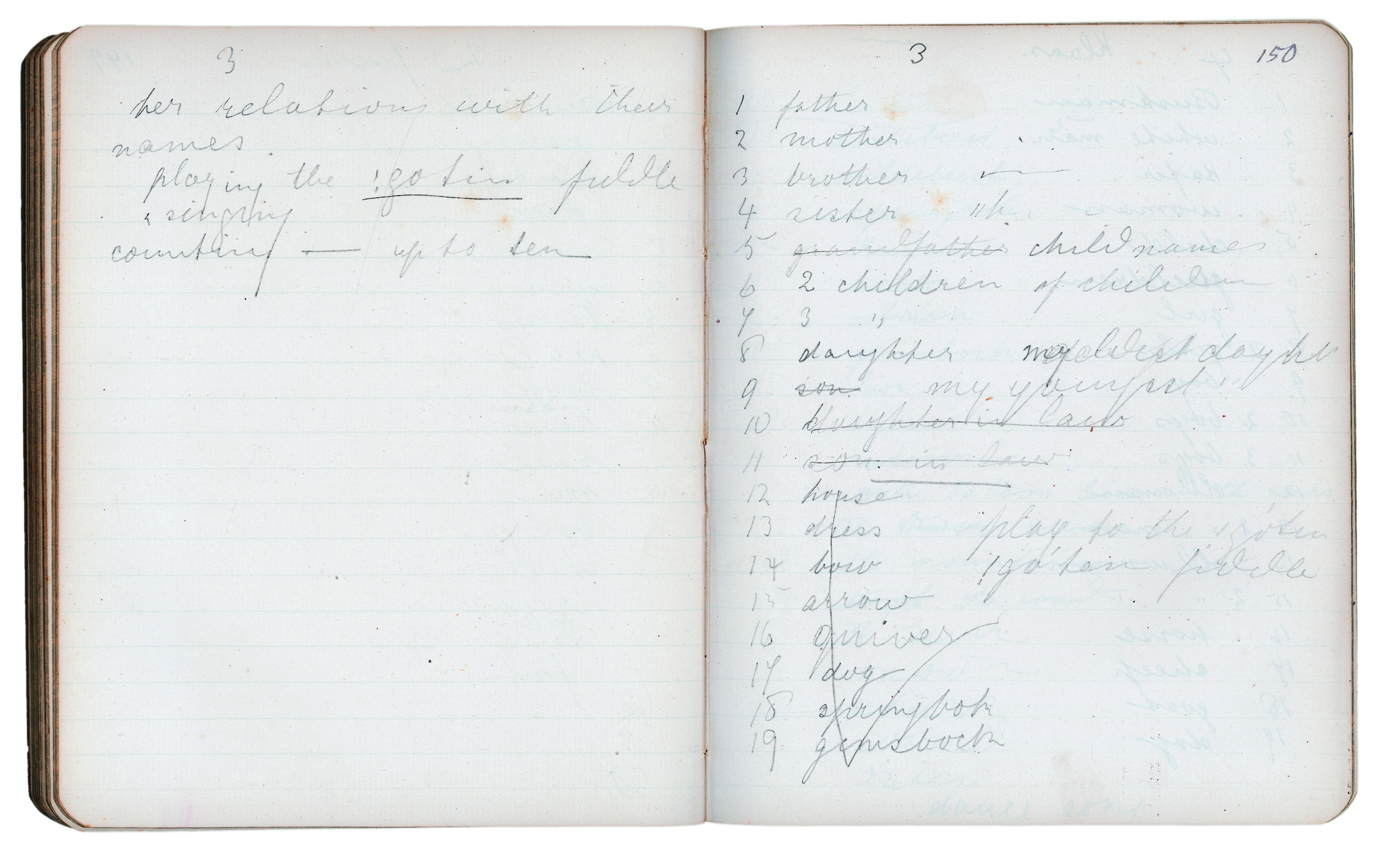 3
her relations with their
names.
playing the !gotin fiddle
" singing
counting — up to ten
3
150
1 father
2 mother
3 brother
4 sister
5 grandfather child names
6 2 children of child
7 3 "
8 daughter my eldest daught
9 son my youngest "
10 daughter in law
11 son in law
12 house
13 dress play to the
14 bow !go'ten fiddle
15 arrow
16 quiver
17 dog
18 springbok
19 gemsbock